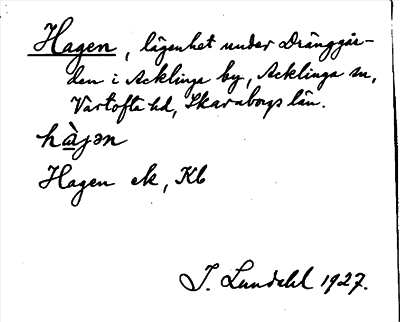 Hagen, lägenhet under Dränggår-
den i Acklinga by, Acklinga sn,
Vartofta hd, Skaraborgs län.
hàjən
Hagen ek, Kb
I. Lundahl 1927.